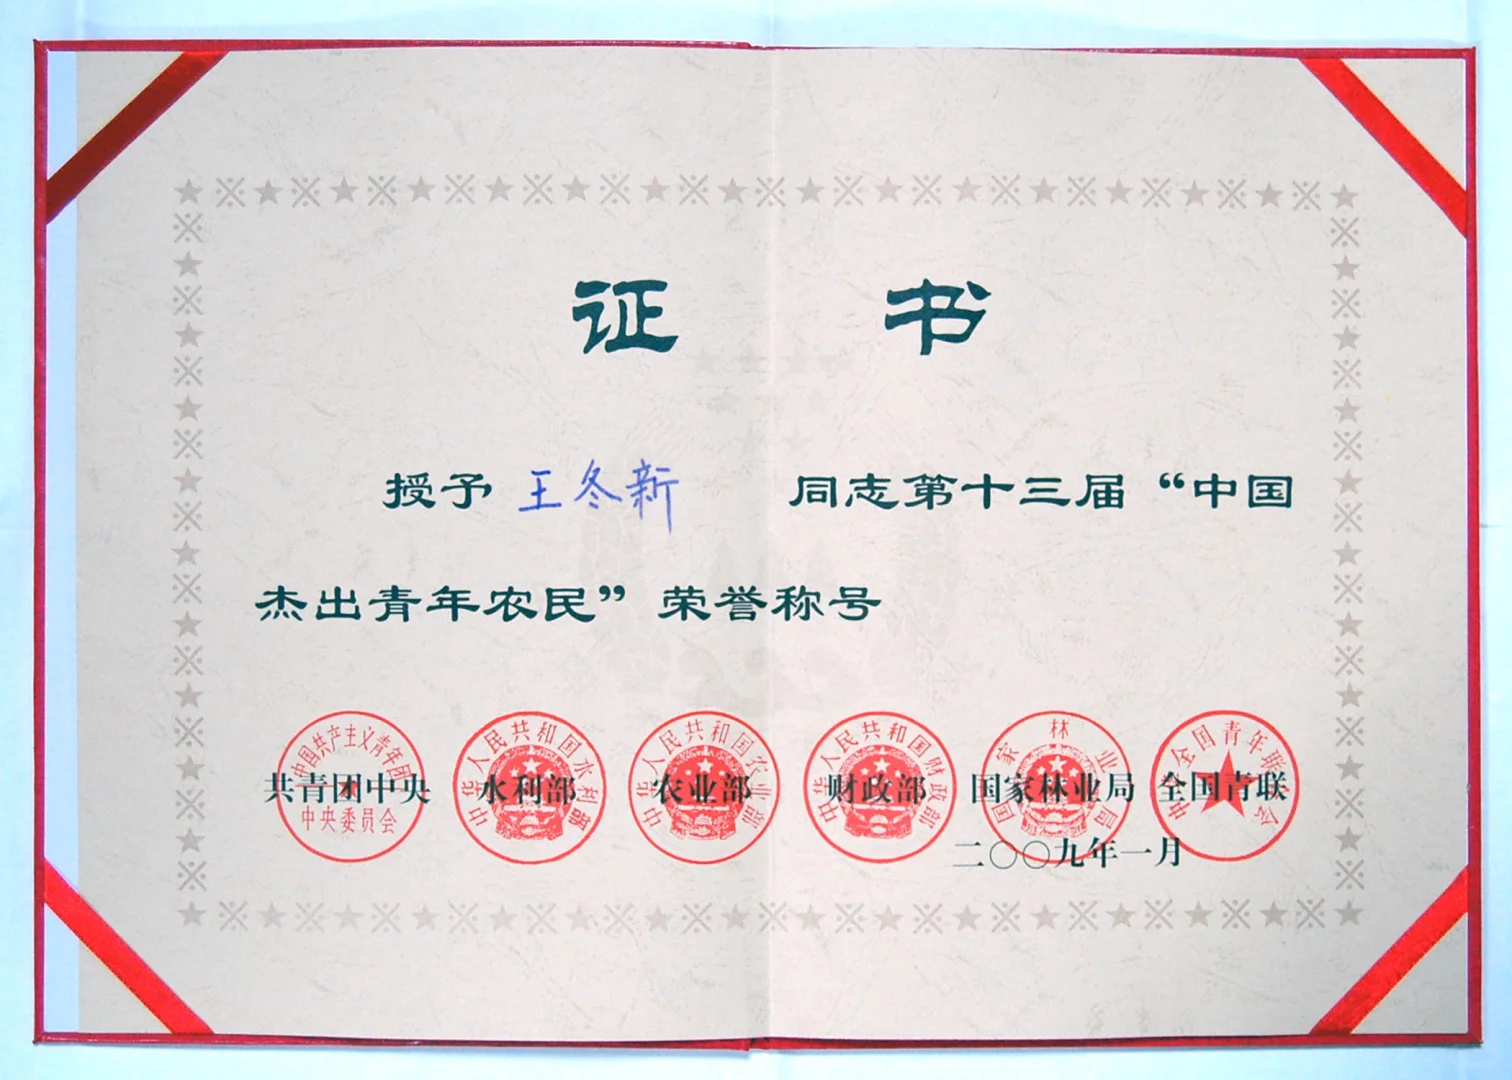 证书
授予 王冬新 同志第十三届“中国
杰出青年农民”荣誉称号
中国共产主义青年团
中央委员会
中华人民共和国水利部
中华人民共和国农业部
中华人民共和国财政部
国家林业局
中华全国青年联合会
共青团中央 水利部 农业部 财政部 国家林业局 全国青联
二〇〇九年一月